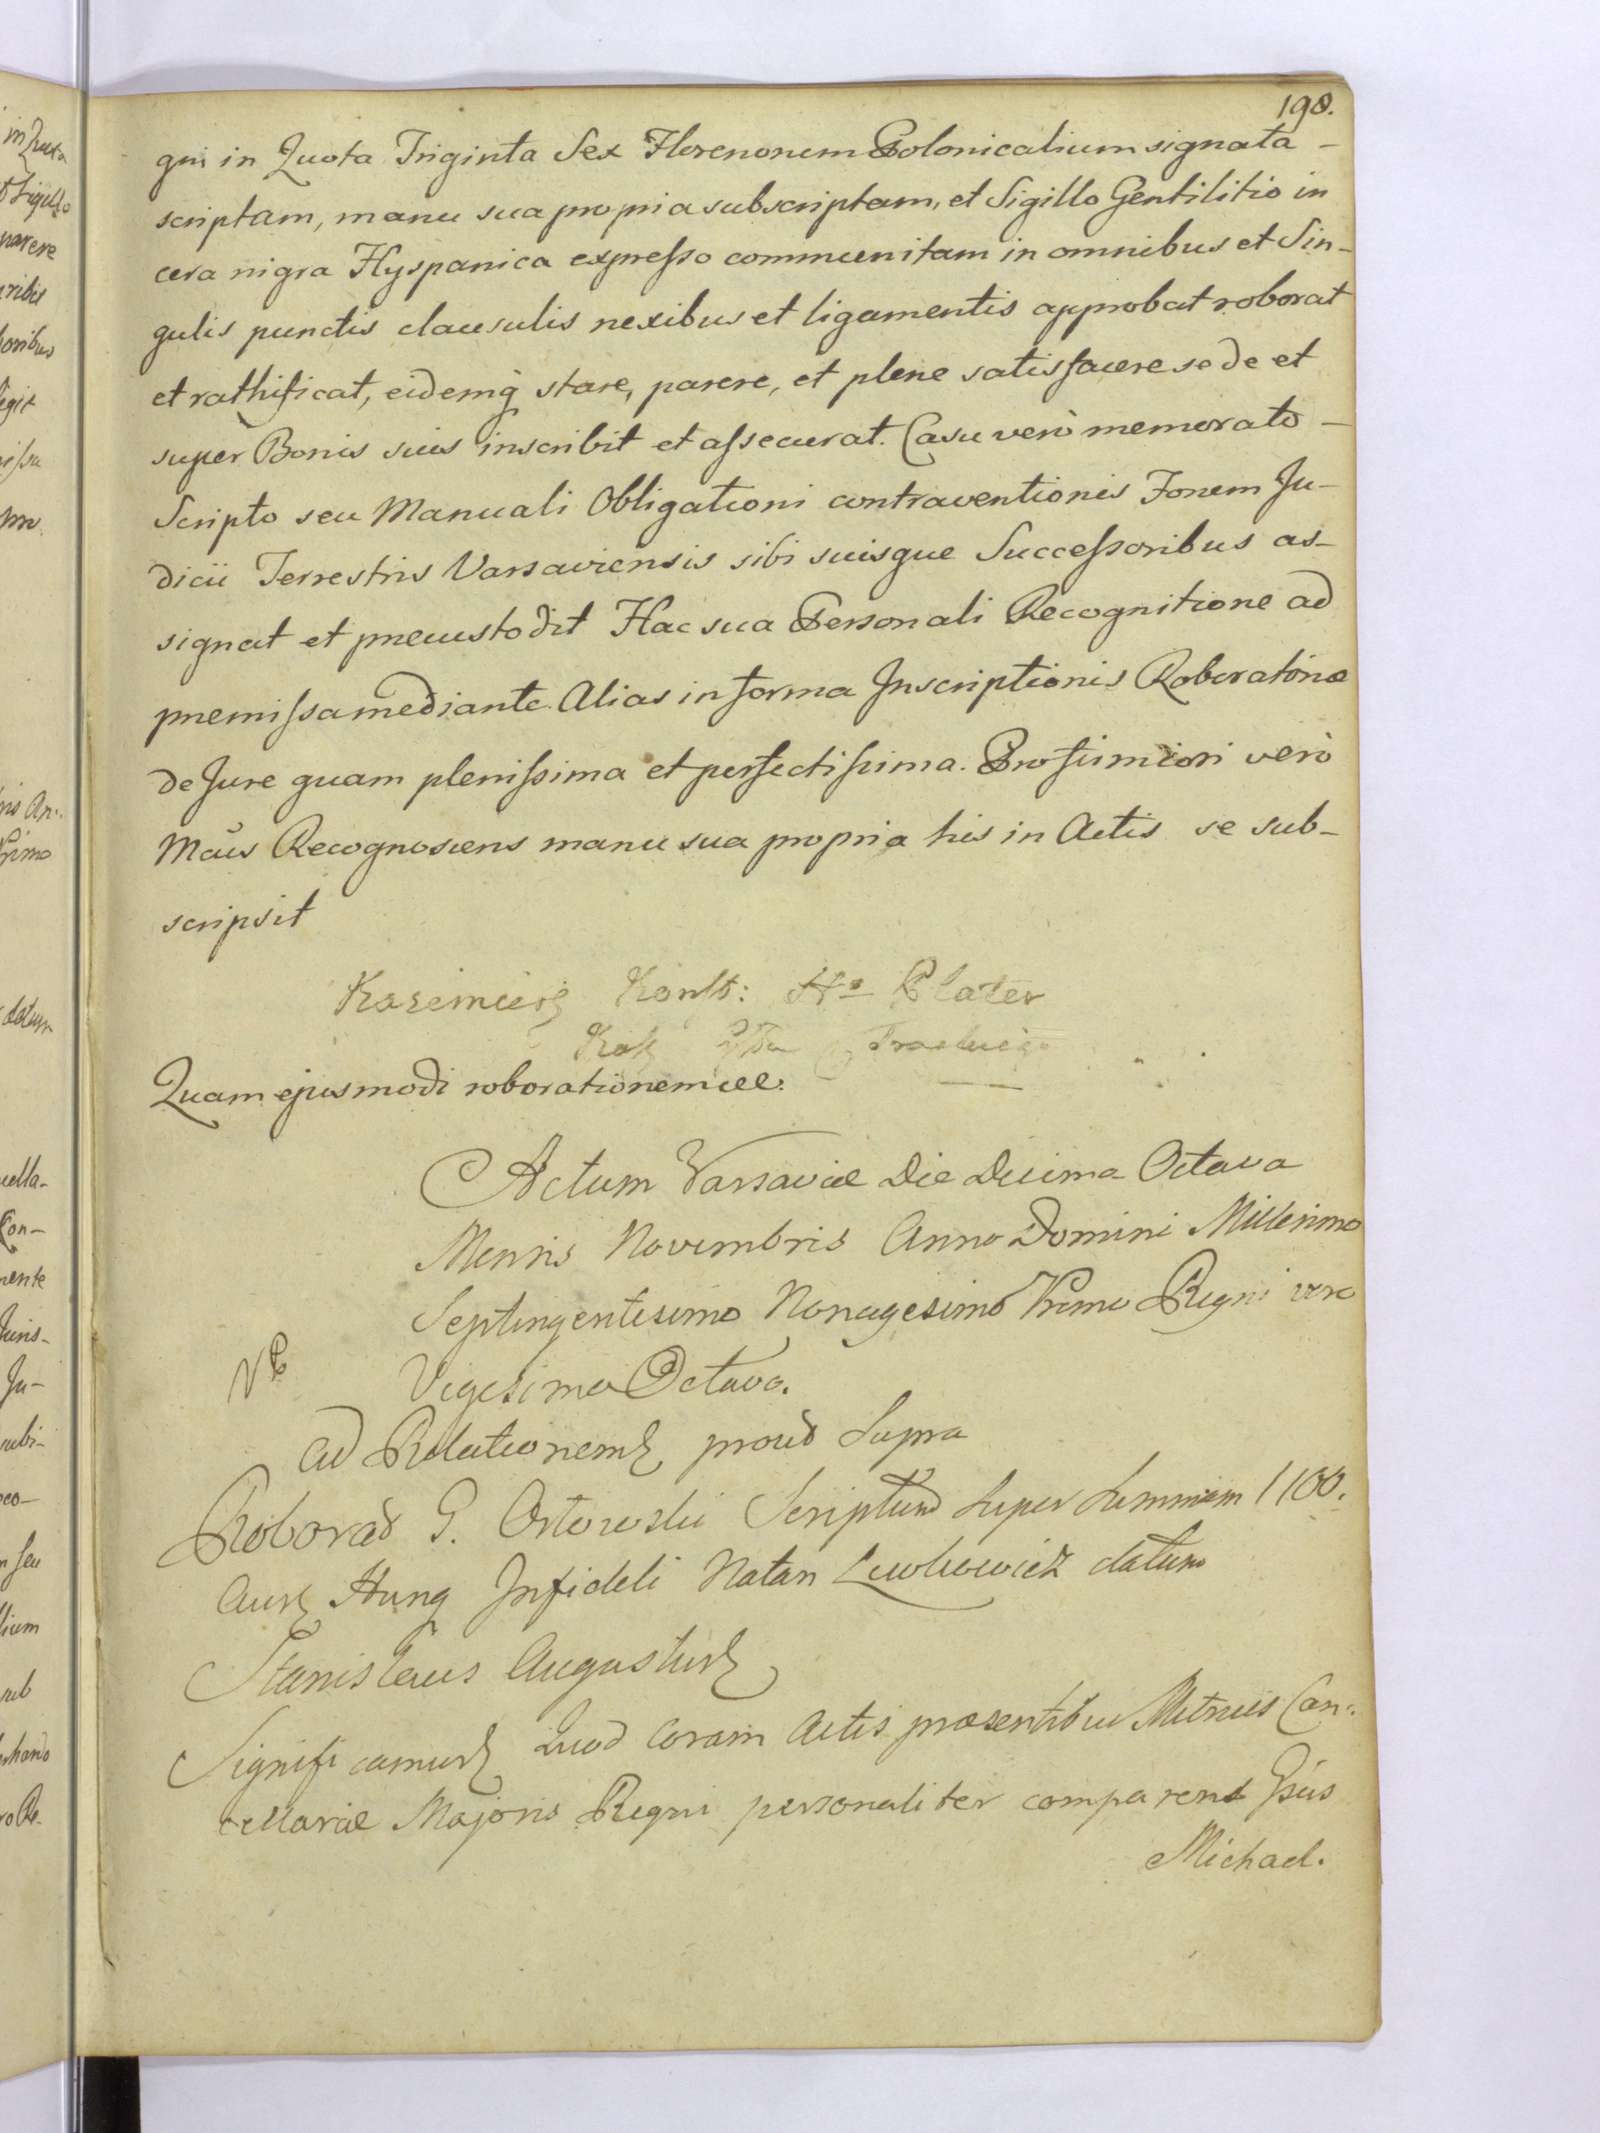 198.
gni in Quota Triginta Sex Florenorum Polonicalium signata -
scriptam, manu sua propria subscriptam, et Sigillo Gentilitio in
cera nigra Hyspanica expresso communitam in omnibus et Sin-
gulis punctis clausulis nexibus et ligamentis approbat roborat
et rathificat, eidemq stare, parere, et plene satisfacere se de et
super Bonis suis inscribit et assecurat. Casu verò memorato -
Scripto seu Manuali Obligationi contraventionis Forum Ju-
dicii Terrestris Varsaviensis sibi suisque Successoribus as-
signat et precustodit Hac sua Personali Recognitione ad
premissa mediante. Alias in forma Inscriptionis Roboratoriæ
de Jure quam plenissima et perfectissima. Pro firmiori verò
Mcus Recognoscens manu sua propria his in Actis se sub-
scripsit
Kazimierz Konst: Hr Plater
Quam ejusmodi roborationem
Actum Varsaviæ Die Decima Octava
Mensis Novembris Anno Domini Millesimo
Septingentesimo Nonagesimo Primo Regni vero
Vigesimo Octavo.
Ad Relationem prout Supra
Roborat G. Ostowski Scriptum Super Summam 1100.
Aur Hung Infideli Natan Lewkowicz datum
Stanislaus Augustus
Significamus Quod Coram Actis præsentibus Metrices Can:
cellariæ Majoris Regni personaliter comparens Gsus
Michael.